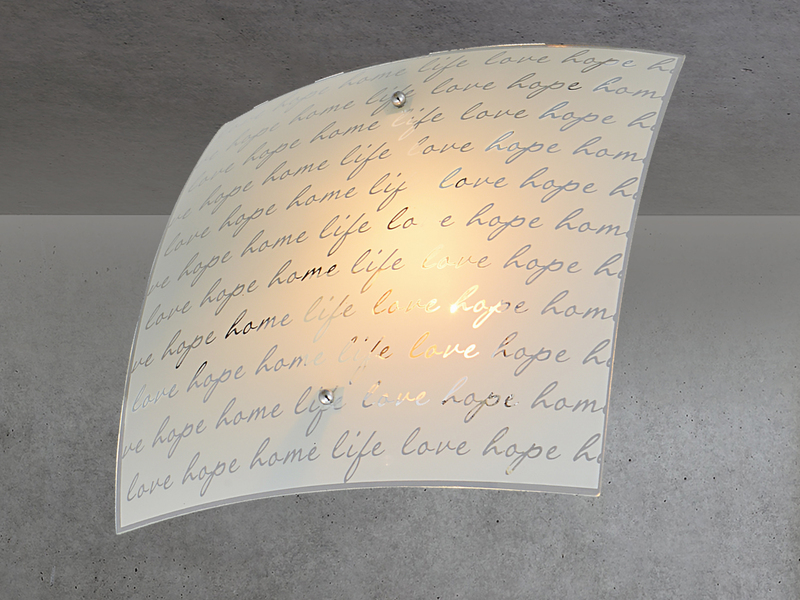 home life love hope h
hope home life love hope home
love hope home life love hope hom
hope home life love hope hom
love hope home lif love hope h
ve hope home life lo e hope hom
love hope home life love hope h
ve hope home life love hope hom
love hope home life love hope h
ve hope home life love hope hom
love hope home life love hope h